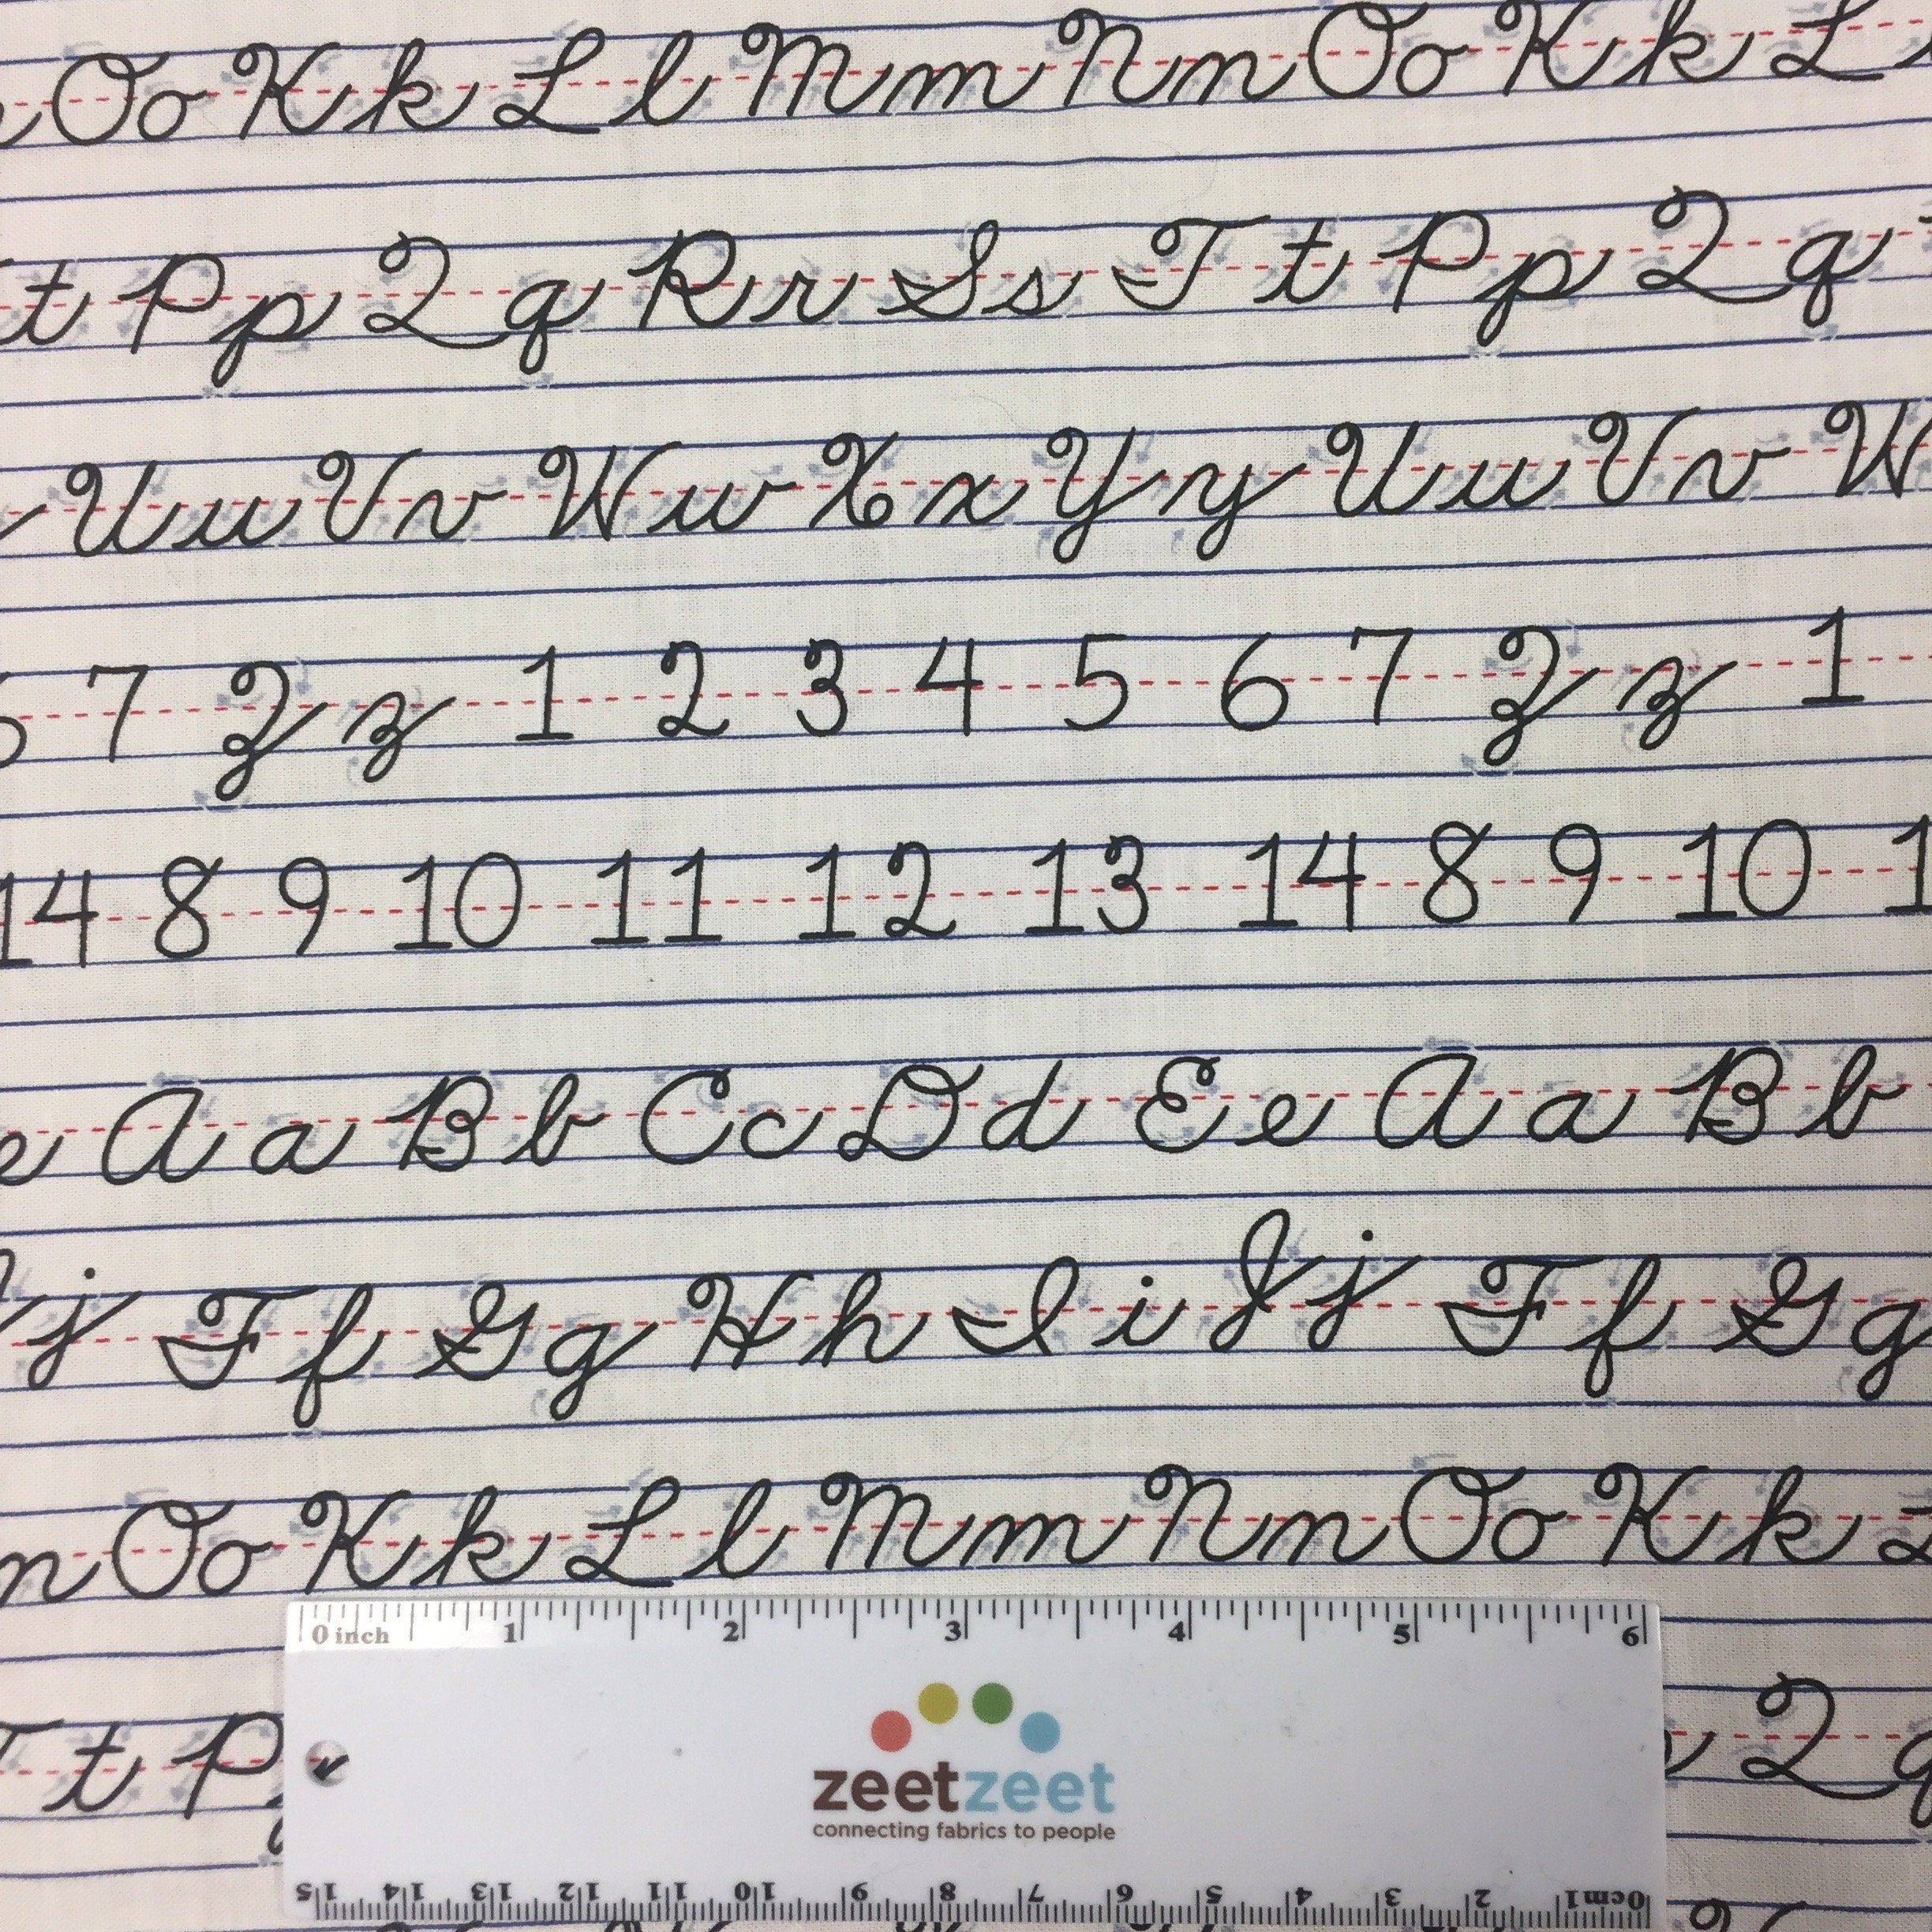 Oo Kk Ll Mm Nn Oo Kk L
t Pp Qq Rr Ss Tt Pp Qq
Uu Vv Ww Xx Yy Uu Vv W
7 Zz 1 2 3 4 5 6 7 Zz 1
14 8 9 10 11 12 13 14 8 9 10 1
e Aa Bb Cc Dd Ee Aa Bb
j Ff Gg Hh Ii Jj Ff Gg
n Oo Kk Ll Mm Nn Oo Kk L
0 inch 1 2 3 4 5 6
t P Q q
zeetzeet
connecting fabrics to people
15 14 13 12 11 10 9 8 7 6 5 4 3 2 1 0cm